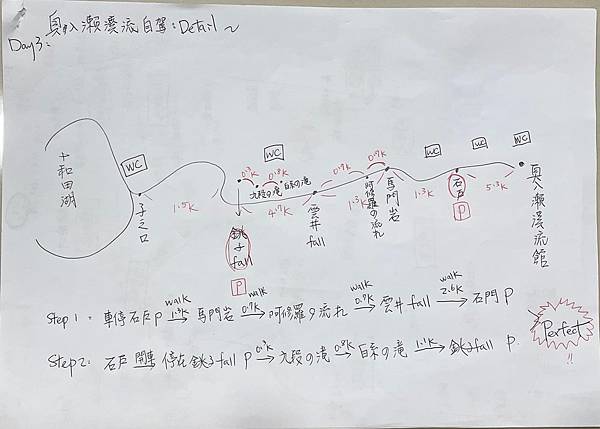 奧入瀨溪流自駕:Detail~
Day3:
WC
WC
WC
WC
WC
十和田湖
子之口
1.5K
0.3K
0.8K
九段の滝
白糸の滝
銚子fall
P
4.7K
雲井fall
0.9K
1.3K
阿修羅の流れ
0.7K
馬門岩
1.3K
石戶
P
5.3K
奧入瀨溪流館
Step 1: 車停石戶P walk 1.3K 馬門岩 walk 0.7K 阿修羅の流れ walk 0.9K 雲井fall walk 2.6K 石門P
Step 2: 石戶 開車 停在銚子fall P 0.3K 九段の滝 0.8K 白糸の滝 1.1K 銚子fall P.
Perfect!!